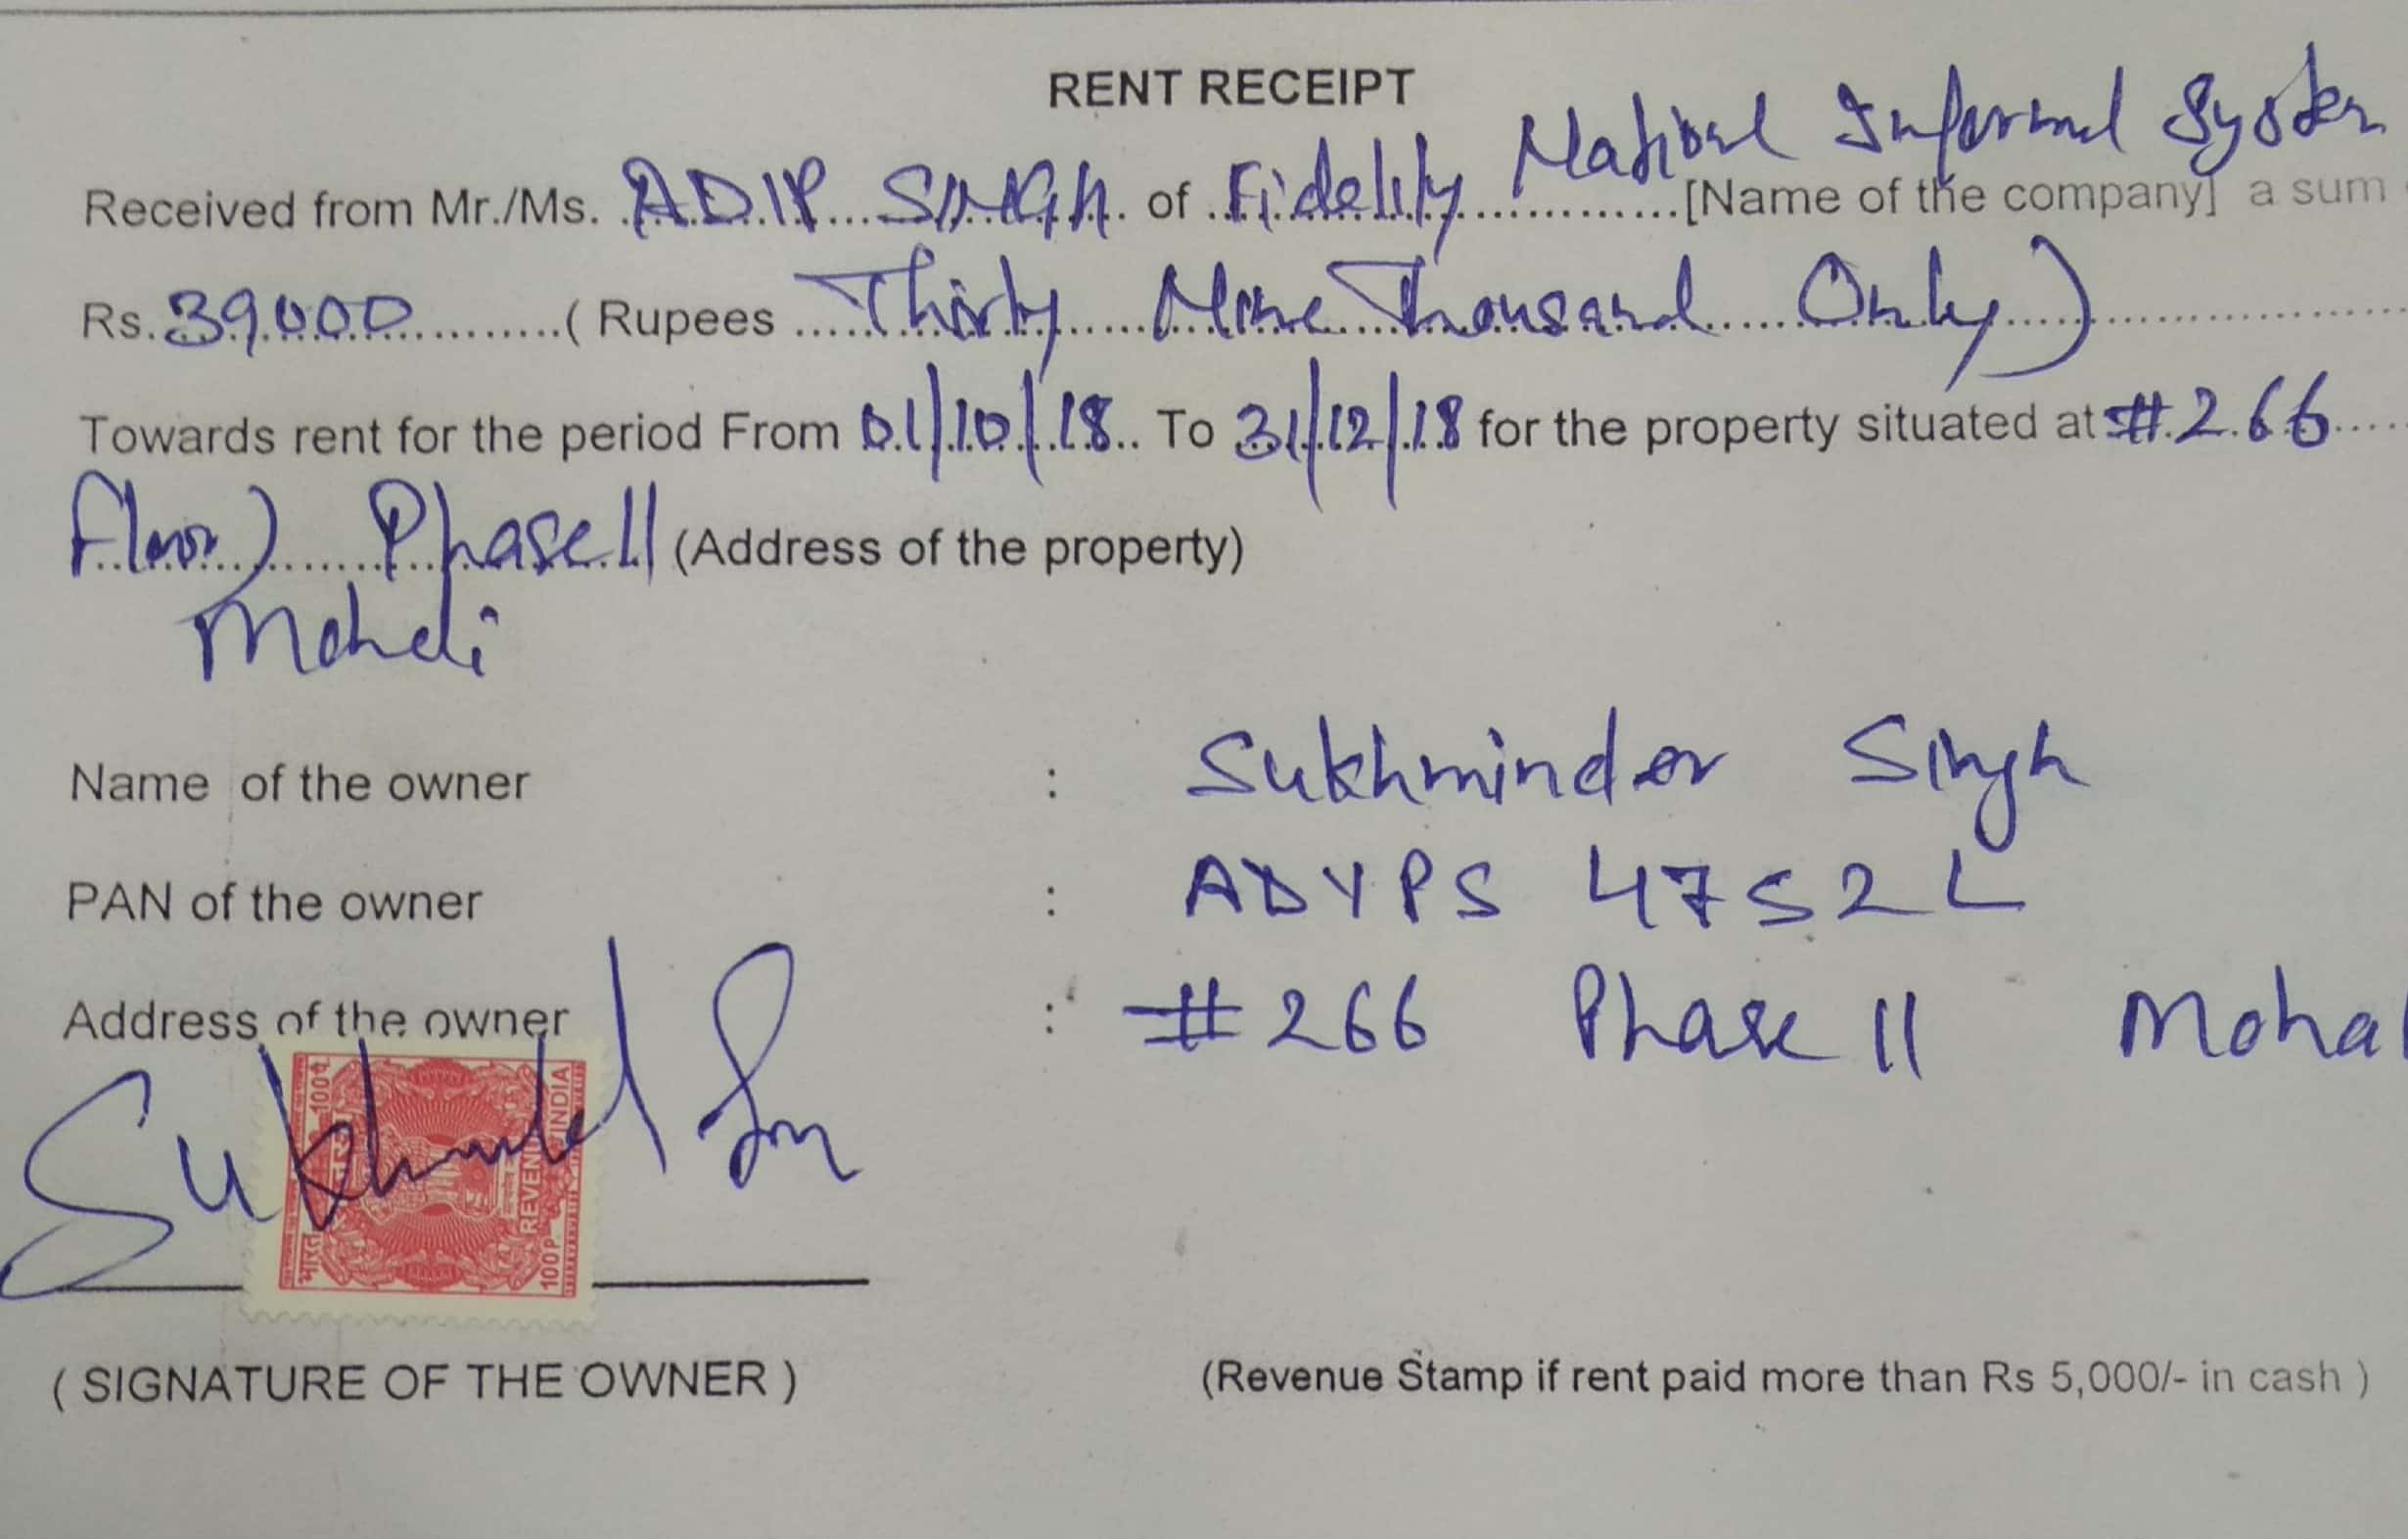 RENT RECEIPT
Received from Mr./Ms. ADIP SINGH of Fidelity National Informal System [Name of the company] a sum
Rs. 39000 ( Rupees Thirty Nine Thousand Only)
Towards rent for the period From 01/10/18 To 31/12/18 for the property situated at #266
Floor) Phase 11 (Address of the property)
Mohali
Name of the owner : Sukhminder Singh
PAN of the owner : ADYPS 4752L
Address of the owner : #266 Phase 11 Mohal
भारत REVENUE INDIA 100P
( SIGNATURE OF THE OWNER )
(Revenue Stamp if rent paid more than Rs 5,000/- in cash )